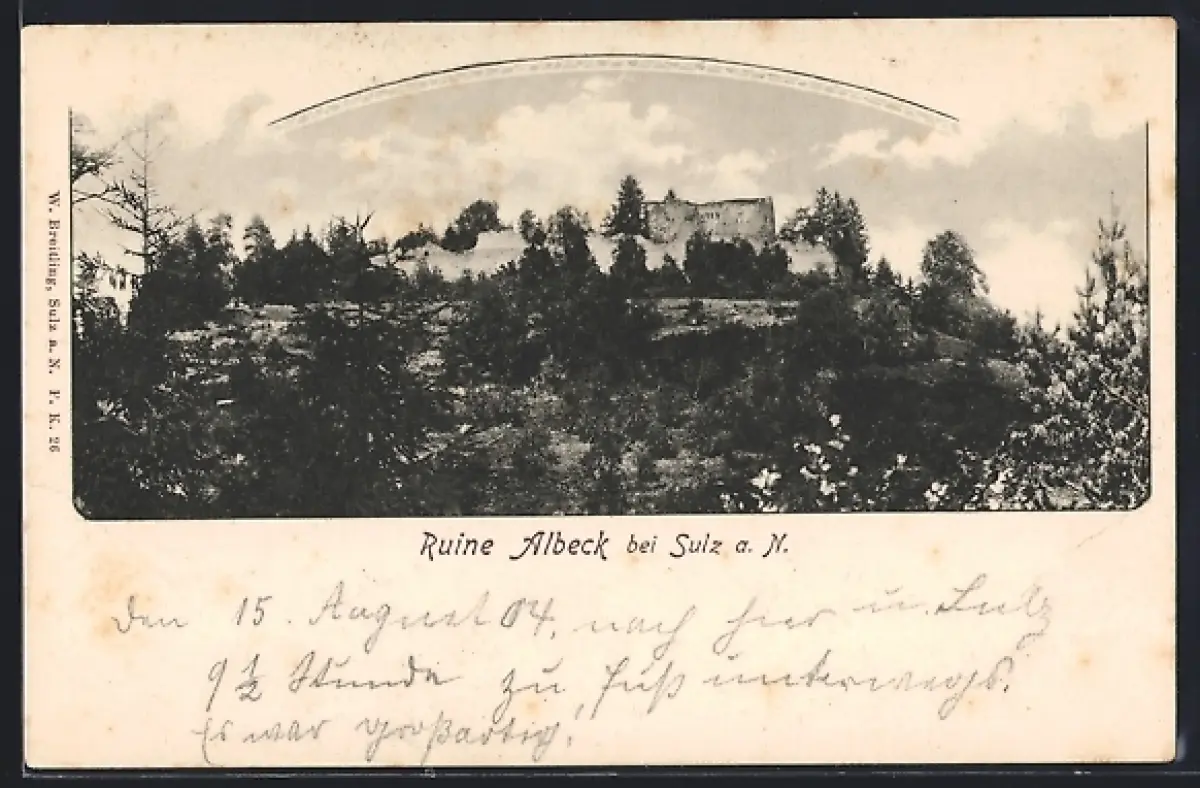 W. Breitling, Sulz a. N. P. K. 26
Ruine Albeck bei Sulz a. N.
den 15. August 04, nach hier u. Sulz
9 1/2 Stunde zu Fuß unterwegs.
Es war großartig!